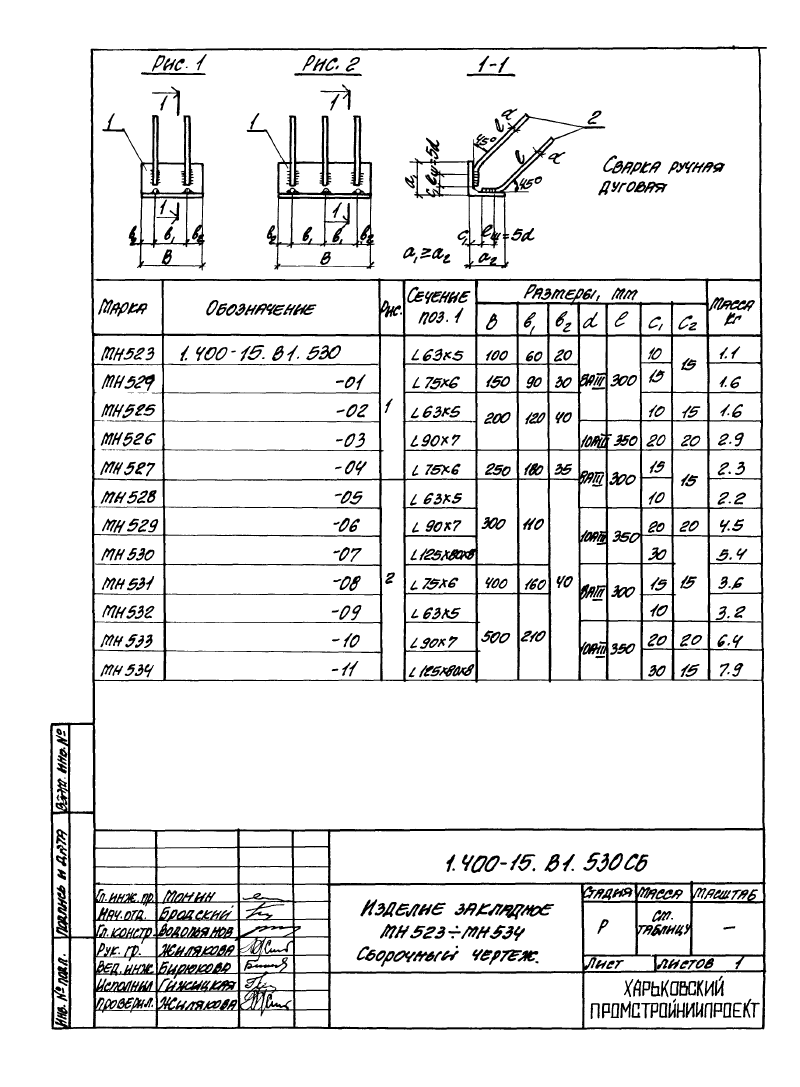 Рис. 1
Рис. 2
1-1
1 1 1 1 2
1 1
a₁ c₂ ℓш=5d 45° ℓ d ℓ d 45°
Сварка ручная
дуговая
в₂ в₁ в₂
В
в₂ в₁ в₁ в₂
В
a₁≥a₂
c₁ ℓш=5d
a₂
Марка Обозначение Рис. Сечение поз. 1 Размеры, мм Масса кг
В в₁ в₂ d ℓ C₁ C₂
МН523 1.400-15.В1.530 1 L63×5 100 60 20 8АIII 300 10 15 1.1
МН524 -01 L75×6 150 90 30 15 1.6
МН525 -02 L63×5 200 120 40 10 15 1.6
МН526 -03 L90×7 10АIII 350 20 20 2.9
МН527 -04 L75×6 250 180 35 8АIII 300 15 15 2.3
МН528 -05 2 L63×5 300 110 40 10 2.2
МН529 -06 L90×7 10АIII 350 20 20 4.5
МН530 -07 L125×80×8 30 15 5.4
МН531 -08 L75×6 400 160 8АIII 300 15 3.6
МН532 -09 L63×5 500 210 10 3.2
МН533 -10 L90×7 10АIII 350 20 20 6.4
МН534 -11 L125×80×8 30 15 7.9
Взам. инв. №
Подпись и дата
Инв. № подл.
1.400-15.В1.530СБ
Гл. инж. пр. Монин
Нач. отд. Бродский
Гл. констр. Водопьянов
Рук. гр. Жилякова
Вед. инж. Бирюкова
Исполнил Гижицкая
Проверил. Жилякова
Изделие закладное
МН523÷МН534
Сборочный чертеж.
Стадия Масса Масштаб
Р см. таблицу –
Лист Листов 1
ХАРЬКОВСКИЙ
ПРОМСТРОЙНИИПРОЕКТ